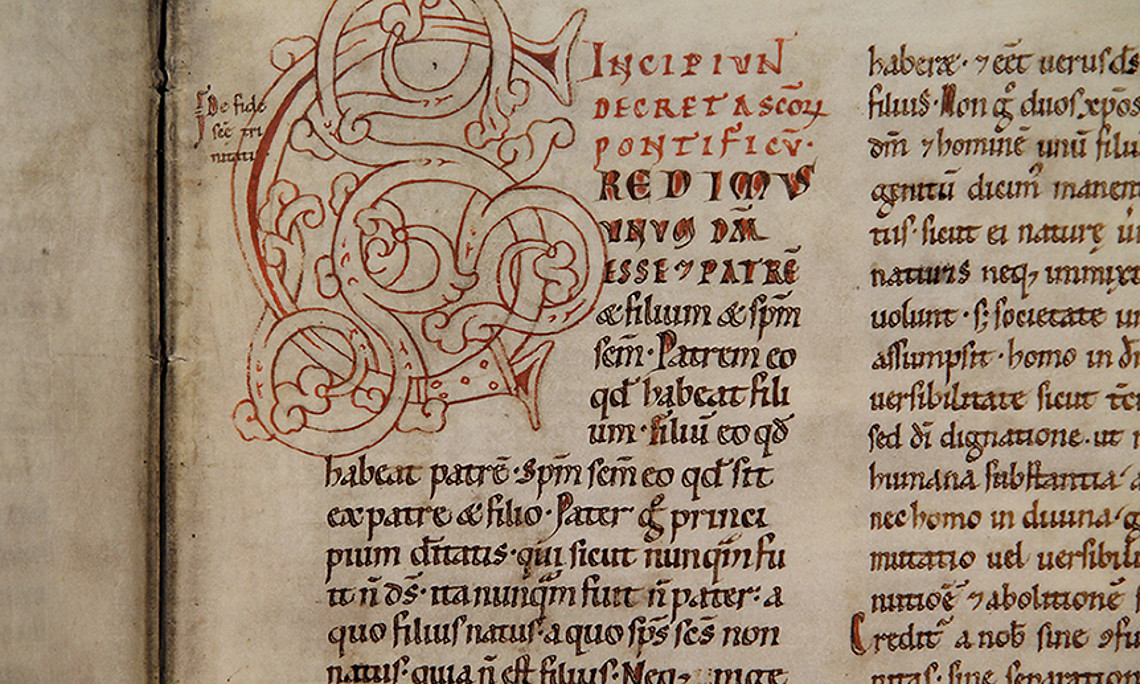 De fide
sc̄e tri
nitatis
INCIPIUN
DECRETA SC̄OꝜ
PONTIFICŪ·
CREDIMUS
UNUM DM̄
ESSE ⁊ PATRĒ
& filium & spm̄
scm̄· Patrem eo
qđ habeat fili
um· filiū eo qđ
habeat patrē· Spm̄ scm̄ eo qđ sit
ex patre & filio· Pater g̊ princi
pium dītatis· qui sicut nunq̄m fu
it n̄ ds̄· ita nunq̄m fuit n̄ pater: a
quo filius natus· a quo sp̄s sc̄s non
natus· quia n̄ est filius· Neq;
haberæ· ⁊ eēt uerus ds̄
filius· Non g̊ duos xp̄os
dm̄ ⁊ hominē unū filiu
genitū dicim᷒ manen
tis· sicut ei naturę
naturis neq; inmixt
uolunt· s; societate un
assumpsit· homo in d
uersibilitate sicut
sed dī dignatione· ut
humana substantia
nec homo in diuina·
mutatio uel uersibili
nutioē ⁊ abolitionē
Credit᷒ a nob̄ sine ꝯfu
sine separation